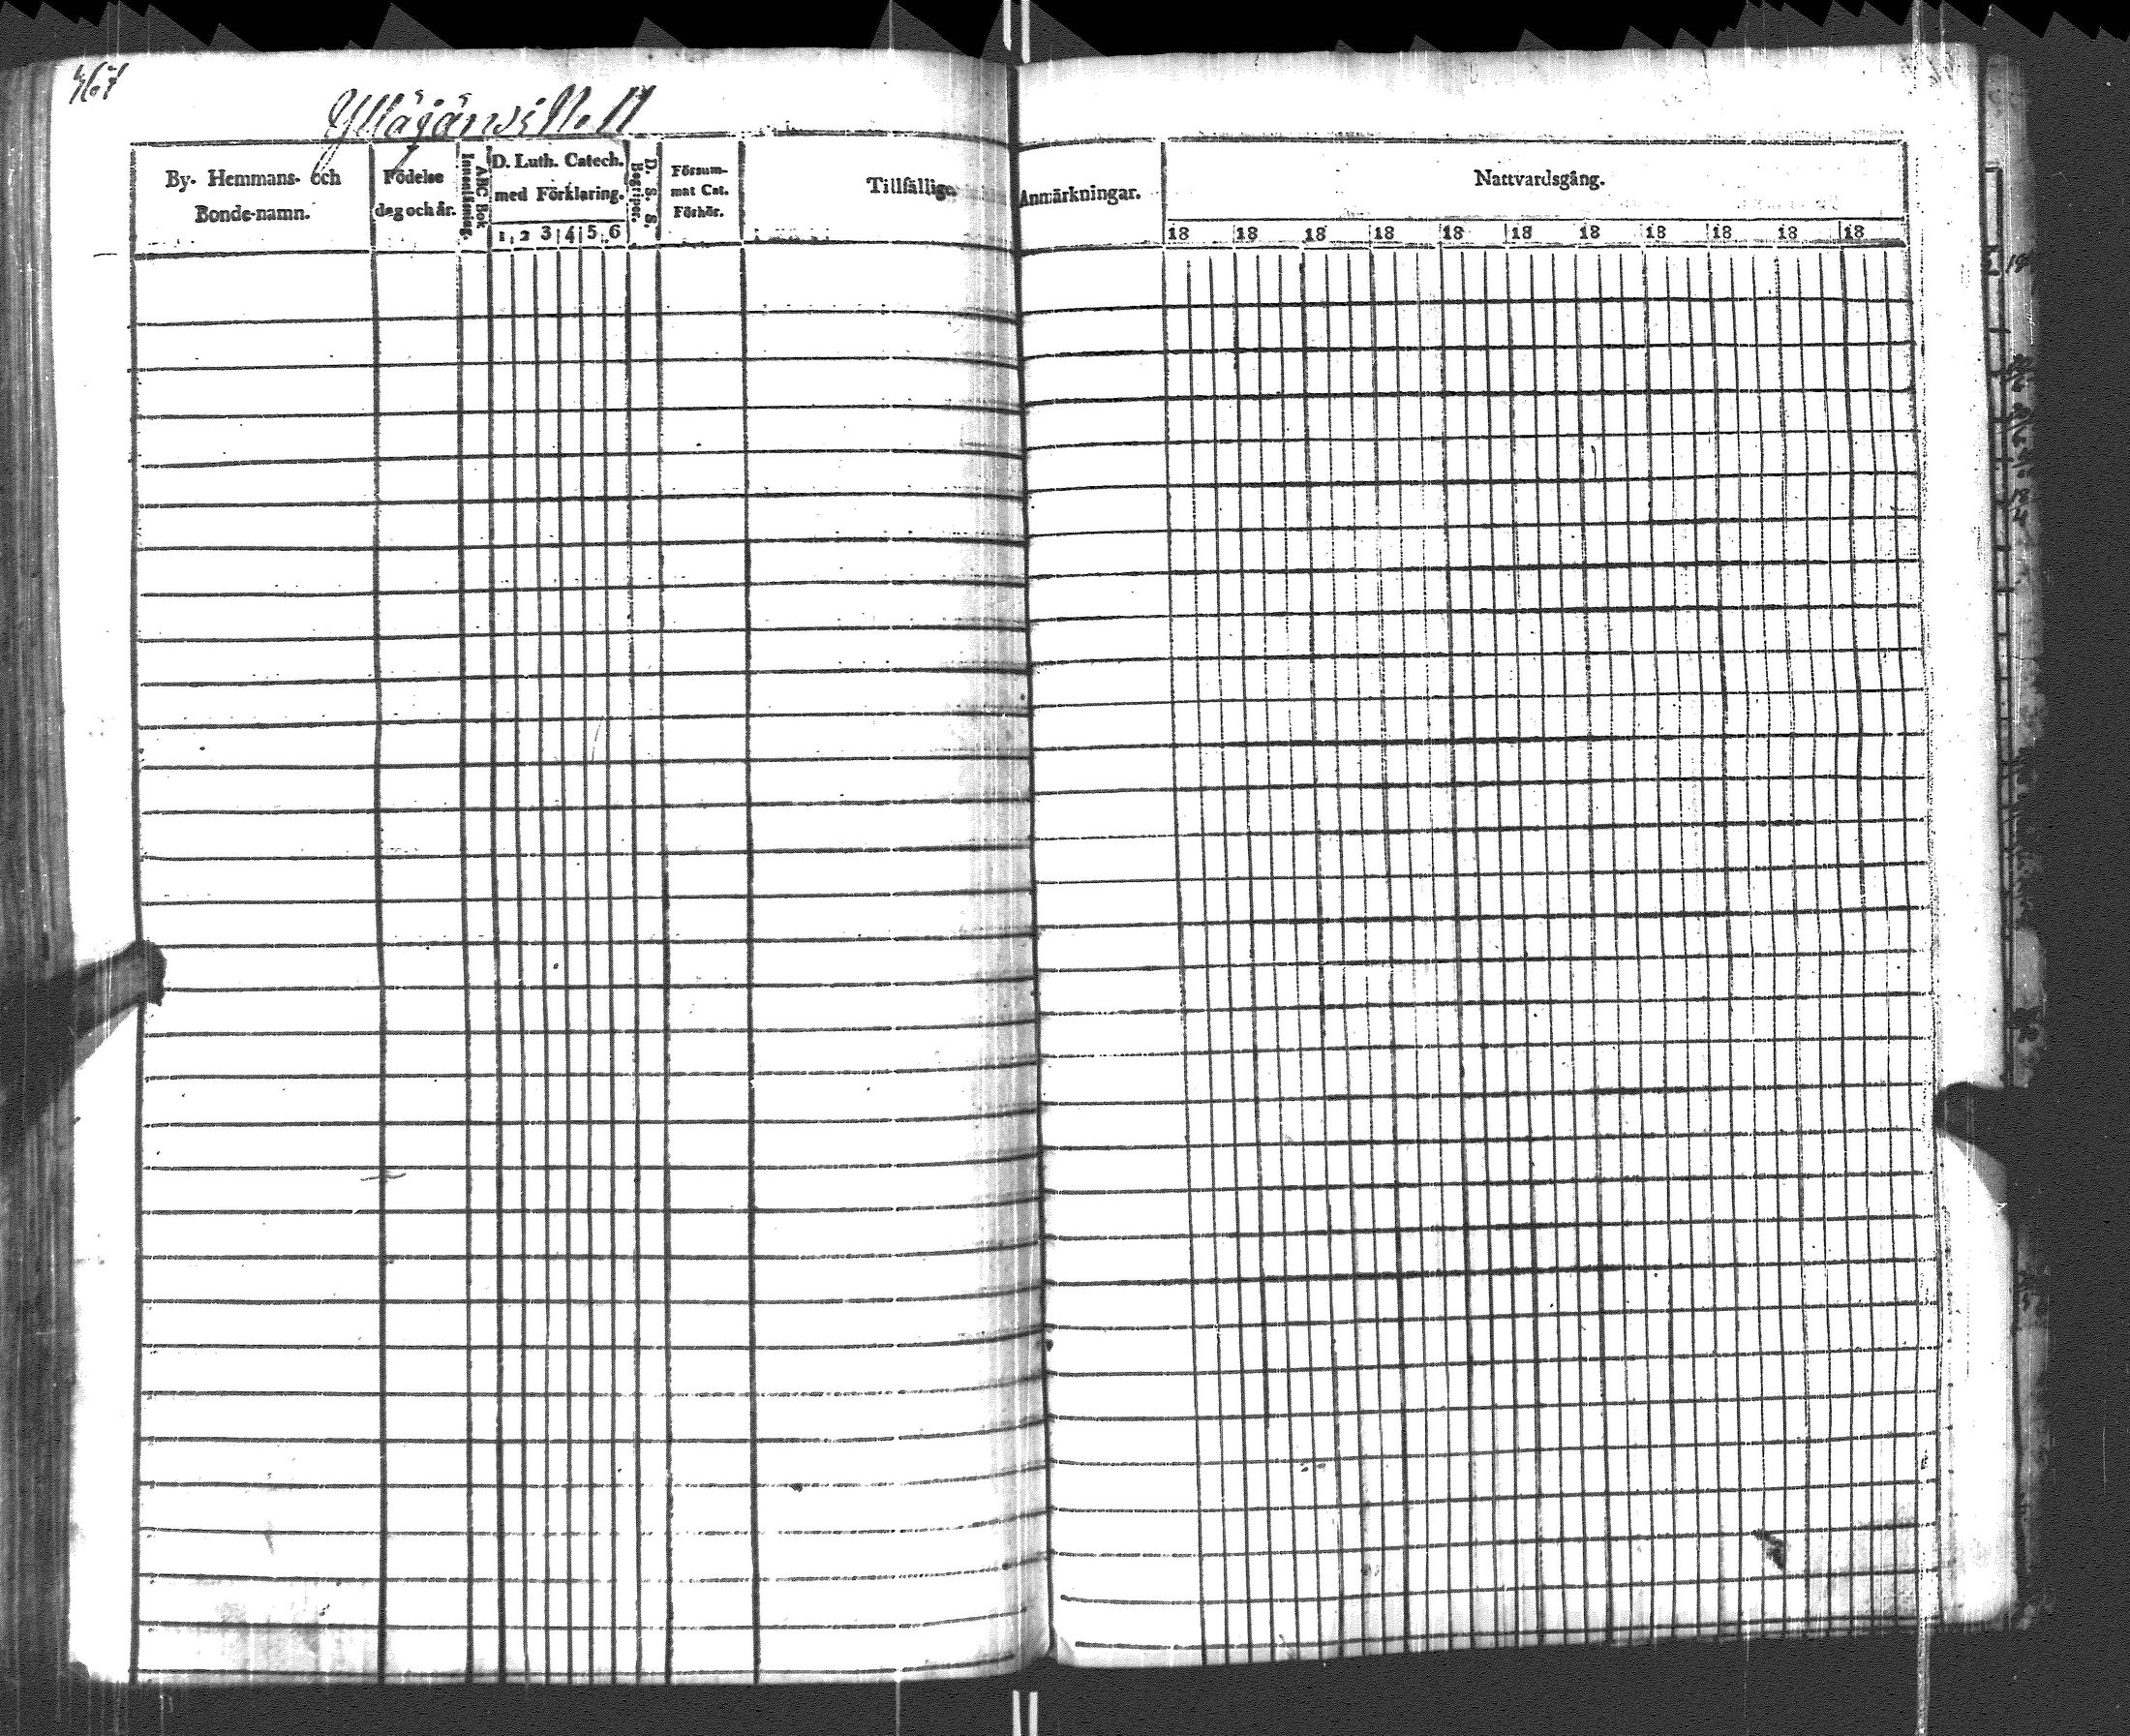 467
Yläjärwi N:o 11
By- Hemmans- och
Bonde-namn.
Födelse
dag och år.
ABC Bok
Innanläsning.
D. Luth. Catech.
med Förklaring.
1 2 3 4 5 6
D. S. S.
Begreper.
Försum-
mat Cat.
Förhör.
Tillfällige
Anmärkningar.
Nattvardsgång.
18 18 18 18 18 18 18 18 18 18 18